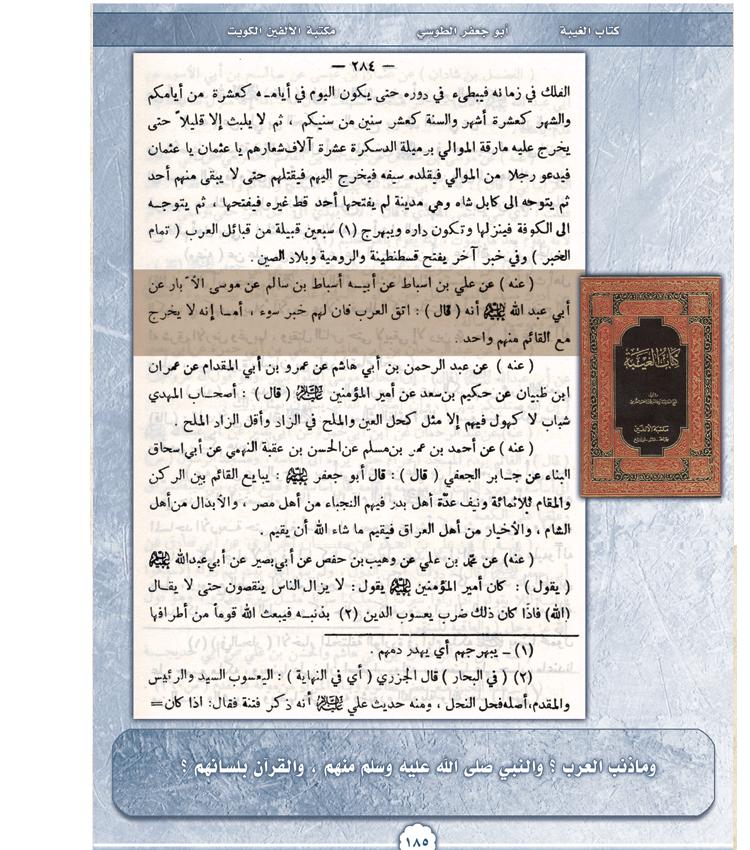 كتاب الغيبة
أبو جعفر الطوسي
مكتبة الالفين الكويت
— ٢٨٤ —
الفلك في زمانه فيبطىء في دوره حتى يكون اليوم في أيامـه كعشرة من أيامكم
والشهر كعشرة أشهر والسنة كعشر سنين من سنيكم ، ثم لا يلبث إلا قليلاً حتى
يخرج عليه مارقة الموالي برميلة الدسكرة عشرة آلاف شعارهم يا عثمان يا عثمان
فيدعو رجلا من الموالي فيقلده سيفه فيخرج اليهم فيقتلهم حتى لا يبقى منهم أحد
ثم يتوجه الى كابل شاه وهي مدينة لم يفتحها أحد قط غيره فيفتحها ، ثم يتوجـه
الى الكوفة فينزلها وتكون داره ويبهرج (١) سبعين قبيلة من قبائل العرب ( تمام
الخبر ) وفي خبر آخر يفتح قسطنطينة والرومية وبلاد الصين .
( عنه ) عن علي بن اسباط عن أبيـه أسباط بن سالم عن موسى الأ بار عن
أبي عبد الله عليه السلام أنه ( قال ) : اتق العرب فان لهم خبر سوء ، أمـا إنه لا يخرج
مع القائم منهم واحد .
( عنه ) عن عبد الرحمن بن أبي هاشم عن عمرو بن أبي المقدام عن عمران
ابن ظبيان عن حكيم بن سعد عن أمير المؤمنين عليه السلام ( قال ) : أصحـاب المهدي
شباب لا كهول فيهم إلا مثل كحل العين والملح في الزاد وأقل الزاد الملح .
( عنه ) عن أحمد بن عمر بن مسلم عن الحسن بن عقبة النهمي عن أبي اسحاق
البناء عن جـابر الجعفي ( قال ) : قال أبو جعفر عليه السلام : يبايع القائم بين الركن
والمقام ثلاثمائة ونيف عدّة أهل بدر فيهم النجباء من أهل مصر ، والأبدال من أهل
الشام ، والأخيار من أهل العراق فيقيم ما شاء الله أن يقيم .
( عنه) عن محمد بن علي عن وهيب بن حفص عن أبي بصير عن أبي عبدالله عليه السلام
( يقول ) : كان أمير المؤمنين عليه السلام يقول : لا يزال الناس ينقصون حتى لا يقـال
(الله) فاذا كان ذلك ضرب يعسوب الدين (٢) بذنبـه فيبعث الله قوماً من أطرافها
(١) ـ يبهرجهم أي يهدر دمهم .
(٢) ( في البحار ) قال الجزري ( أي في النهاية ) : اليعسوب السيد والرئيس
والمقدم،أصله فحل النحل ، ومنه حديث علي عليه السلام أنه ذكر فتنة فقال: اذا كان=
كتاب الغيبة
مكتبة الألفين
وماذنب العرب ؟ والنبي صلى الله عليه وسلم منهم ، والقرآن بلسانهم ؟
١٨٥